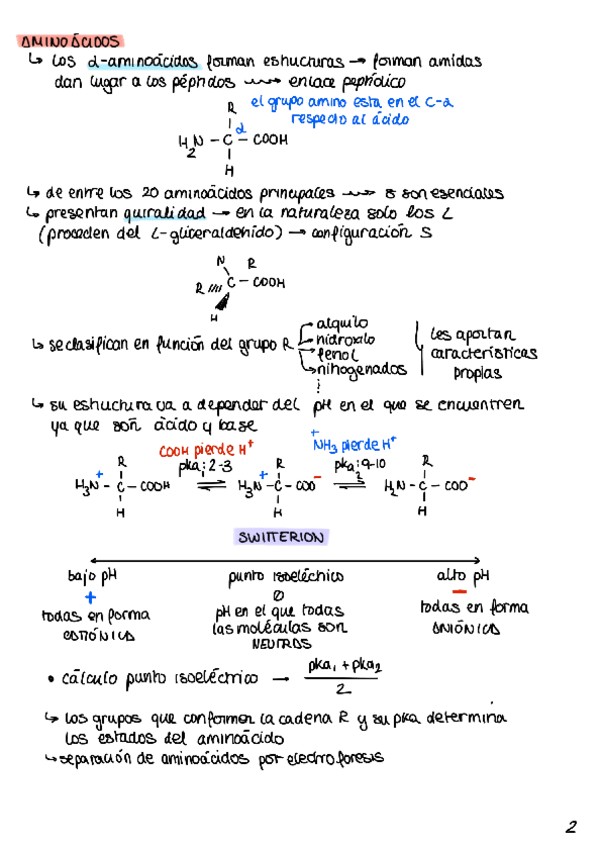 AMINOÁCIDOS
↳ los α-aminoácidos forman estructuras → forman amidas
dan lugar a los péptidos ⟿ enlace peptídico
R el grupo amino esta en el C-α
respecto al ácido
H2N – C – COOH
α
H
↳ de entre los 20 aminoácidos principales ⟿ 8 son esenciales
↳ presentan quiralidad → en la naturaleza solo los L
(proceden del L-gliceraldehído) → configuración S
N R
R C – COOH
H
↳ se clasifican en función del grupo R
alquilo
hidroxilo
fenol
nitrogenados
⋮
les aportan
características
propias
↳ su estructura va a depender del pH en el que se encuentren
ya que son ácido y base
COOH pierde H+ +NH3 pierde H+
pka1: 2-3 pka2: 9-10
R R R
+H3N – C – COOH ⇌ +H3N – C – COO– ⇌ H2N – C – COO–
H H H
SWITTERION
bajo pH punto isoeléctrico alto pH
+ O –
todas en forma pH en el que todas todas en forma
CATIÓNICA las moléculas son ANIÓNICA
NEUTRAS
• cálculo punto isoeléctrico → pka1 + pka2
2
↳ los grupos que conformer la cadena R y su pka determina
los estados del aminoácido
↳ separación de aminoácidos por electroforesis
2